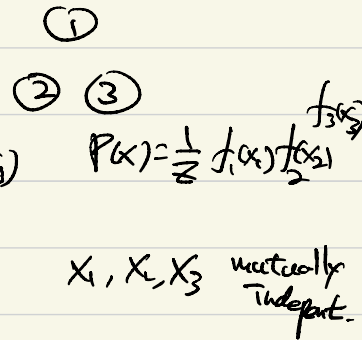 ①
② ③
P(x)=1/Z f₁(x₁) f₂(x₂) f₃(x₃)
X₁, X₂, X₃ mutually
Indepent.